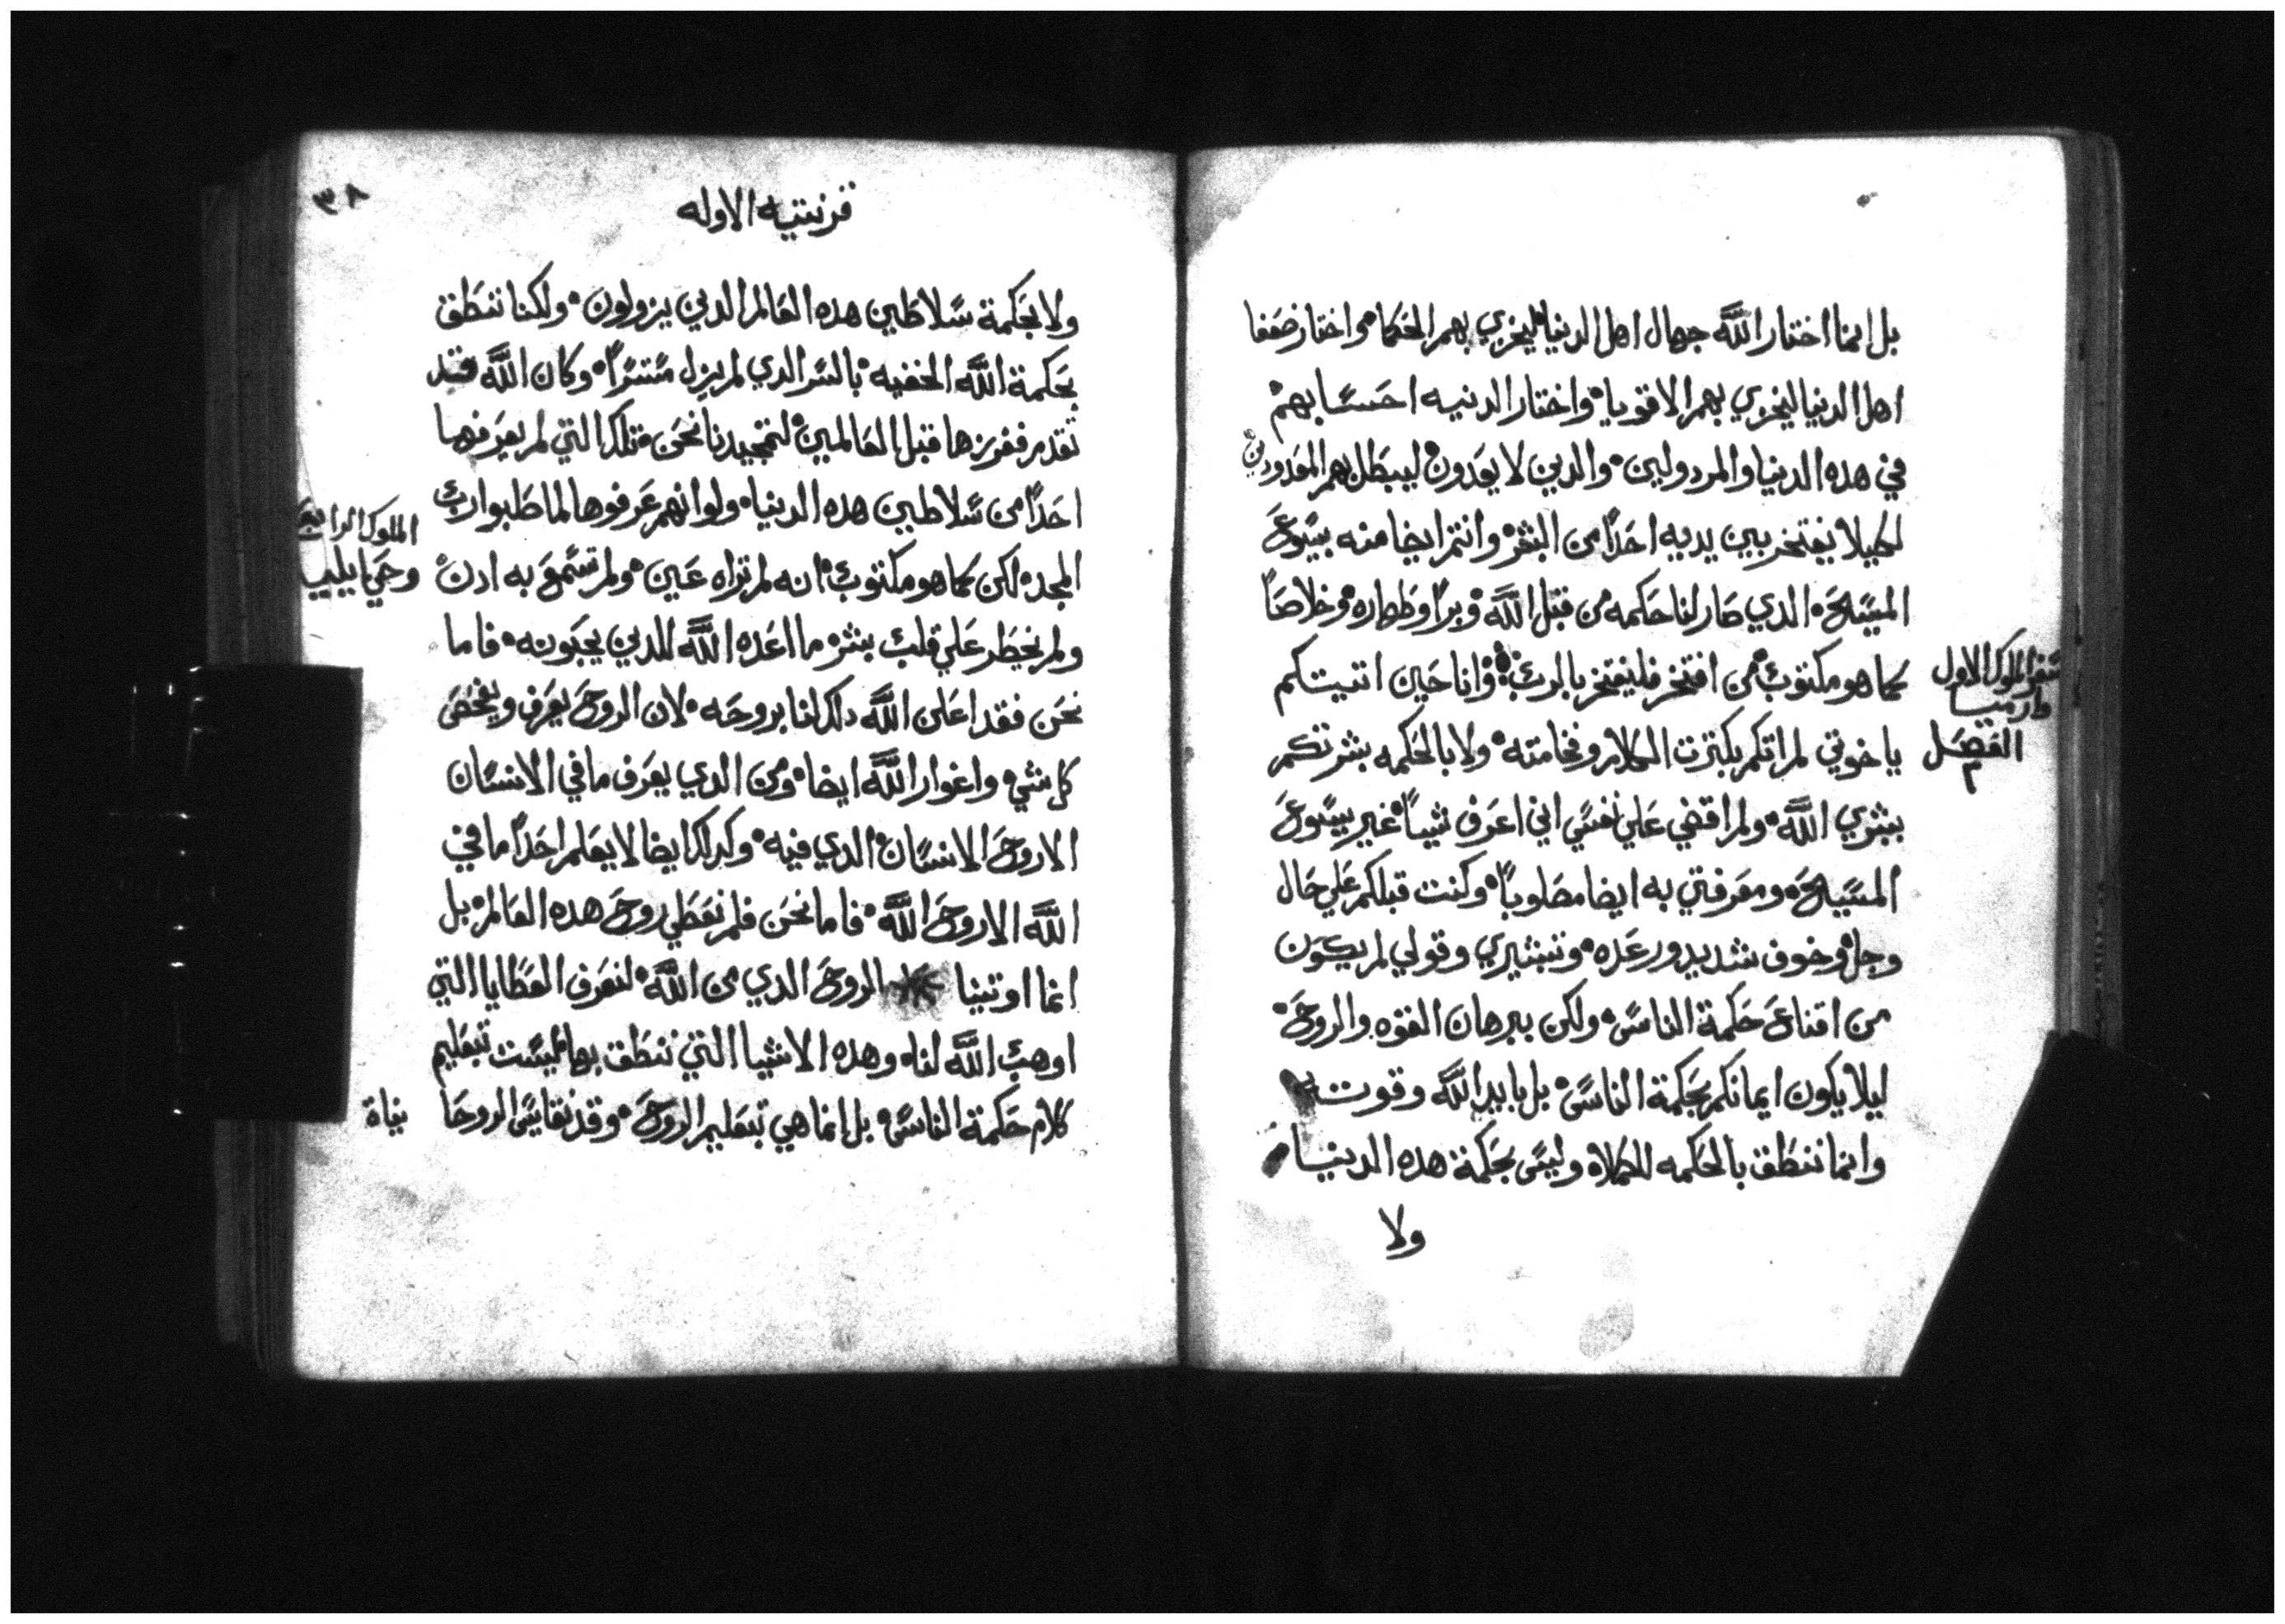 بل انما اختار الله جهال اهل الدنيا ليخزي بهم الحكما واختار ضعفا
اهل الدنيا ليخزي بهم الاقويا واختار الدنيه احسابهم
في هده الدنيا والمردولين والدين لا يعدون ليبطل بهم المعدودين
لكيلا يفتخر بين يديه احدًا من البشر وانتم ايضا منه بيسوع
المسيح الدي صار لنا حكمه من قبل الله وبرًا وطهاره وخلاصًا
كما هو مكتوب من افتخر فليفتخر بالرب وانا حين اتيتكم
سفر الملوك الاول
وارميا
الفصل
٢
ياخوتي لم اتكم بكترت الكلام وفخامته ولا بالحكمه بشرتكم
ببشري الله ولم اقضي علي نفسي اني اعرف شياً غير يسوع
المسيح ومعرفتي به ايضا مصلوباً وكنت قبلكم علي حال
وجل وخوف شديد ورعده وتبشيري وقولي لم يكون
من اقناع حكمة الناس ولكن ببرهان القوه والروح
ليلا يكون ايمانكم بحكمة الناس بل بايد الله وقوته
وانما ننطق بالحكمه للكملاه وليس بحكمة هده الدنيا
ولا
٣٨
قرنتيه الاوله
ولا بحكمة سلاطين هده العالم الدين يزولون ولكنا ننطق
بحكمة الله الخفيه بالسر الدي لم يزل مستترًا وكان الله قد
تقدم ففرزها قبل العالمين لتمجيدنا نحن تلك التي لم يعرفها
احدًا من سلاطين هده الدنيا ولو انهم عرفوها لما صلبوا رب
المجد لكن كما هو مكتوب انه لم تراه عين ولم تسمع به ادن
الملوك الرابع
وحي
ولم يخطر علي قلب بشر ما اعده الله للدين يحبونه فاما
نحن فقد اعلن الله دلك لنا بروحه لان الروح يعرف ويفحص
كل شي واغوار الله ايضا ومن الدي يعرف ما في الانسان
الا روح الانسان الدي فيه وكدلك ايضا لا يعلم احدًا ما في
الله الا روح الله فاما نحن فلم نعطي روح هده العالم بل
انما اوتينا الروح الدي من الله لنعرف العطايا التي
اوهب الله لنا وهده الاشيا التي ننطق بها ليست تبعليم
كلام حكمة الناس بل انما هي تبعليم الروح وقد نقايس الروحا
نياة